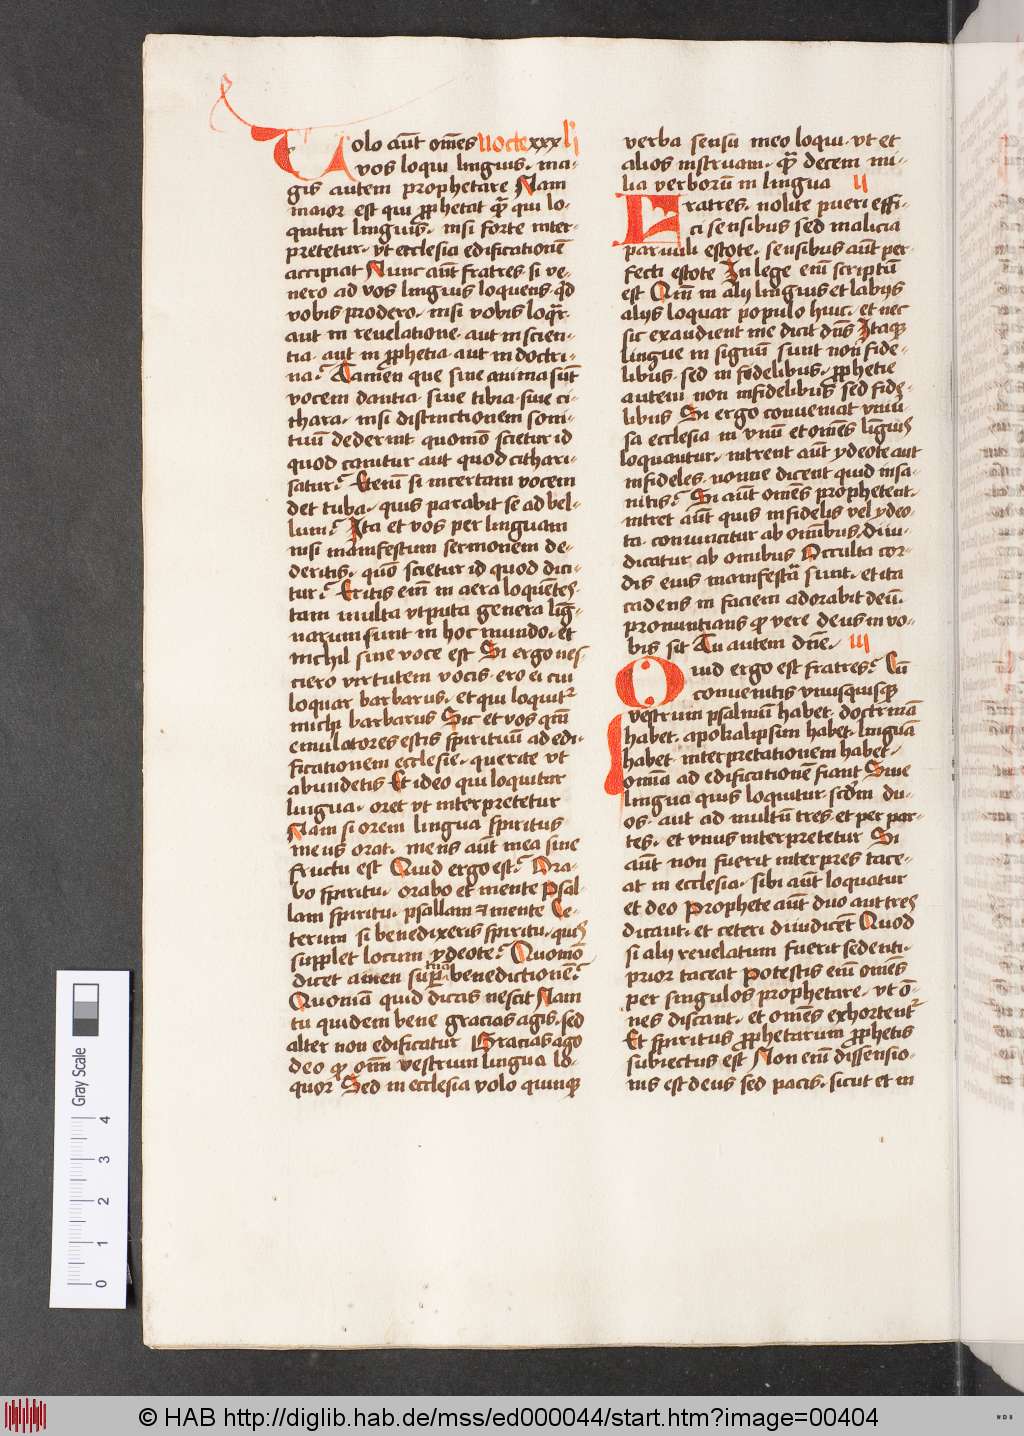 Uolo aut̄ om̄es Nocte xxx lī
vos loqui linguis. ma-
gis autem prophetare Nam
maior est qui ꝓphetat qͣ̄ qui lo-
quitur linguis. nisi forte inter-
pretetur. vt ecclesia edificationē
accipiat Nunc aut̄ fratres si ve-
nero ad vos linguis loquens. qd̄
vobis prodero. nisi vobis loqͣr.
aut in reuelatione. aut in scien-
tia. aut in ꝓphetia. aut in doctri-
na? Tamen que sine anima sūt
vocem dantia. siue tibia. siue ci-
thara. nisi distinctionem soni-
tuū dederint quomō scietur id
quod canitur aut quod cithari-
satur? Etenī si incertam vocem
det tuba. quis parabit se ad bel-
lum? Ita et vos per linguam
nisi manifestum sermonem de-
deritis. quō scietur id quod dici-
tur? Eritis em̄ in aera loquētes.
tam multa vtputa genera liḡ-
narum sunt in hoc mundo. et
nichil sine voce est Si ergo nes-
ciero virtutem vocis. ero ei cui
loquar barbarus. et qui loquitͬ
michi barbarus Sic et vos qm̄
emulatores estis spirituū ad edi-
ficationem ecclesie. querite vt
abundetis Et ideo qui loquitur
lingua. oret vt interpretetur
Nam si orem lingua spiritus
meus orat. mens aut̄ mea sine
fructu est Quid ergo est? Ora-
bo spiritu. orabo et mente Psal-
lam spiritu. psallam ⁊ mente Ce-
terum si benedixeris spiritu. quis
supplet locum ydeote? Quomō
dicet amen sup̄ tuā benedictionē?
Quomā quid dicas nescit Nam
tu quidem bene gracias agis. sed
alter non edificatur Gracias ago
deo ꝙ om̄ vestrum lingua lo-
quor Sed in ecclesia volo quinqꝫ
verba sensu meo loqui. vt et
alios instruam. qͣ̄ decem mi-
lia verborū in lingua ii
Fratres. nolite pueri effi-
ci sensibus sed malicia
paruuli estote. sensibus aut̄ per-
fecti estote In lege em̄ scriptū
est Qm̄ in alijs linguis et labijs
alijs loquar populo huic. et nec
sic exaudient me dicit dn̄s Itaqꝫ
lingue in signū sunt non fide-
libus. sed infidelibus. ꝓphetie
autem non infidelibus sed fide-
libus Si ergo conueniat vniu̅-
sa ecclesia in vnū et om̄es liguis
loquantur. intrent aut̄ ydeote aut
infideles. nonne dicent quid insa-
nitis? Si aut̄ om̄es prophetent.
intret aut̄ quis infidelis vel ydeo-
ta. conuincitur ab om̄ibus, diiu-
dicatur ab omnibus Occulta cor-
dis eius manifesta sunt. et ita
cadens in faciem adorabit deū.
pronuntians ꝙ vere deus in vo-
bis sit Tu autem dn̄e. iii
Quid ergo est fratres? Cū
conuenitis vnusquisqꝫ
vestrum psalmū habet. doctrinā
habet. apokalipsim habet. linguā
habet interpretationem habet.
omīa ad edificationē fiant Siue
lingua quis loquitur. scdm̄ du-
os. aut ad multū tres. et per par-
tes. et vnus interpretetur Si
aut̄ non fuerit interpres tace-
at in ecclesia. sibi aut̄ loquatur
et deo Prophete aut̄ duo aut tres
dicant. et ceteri diiudicēt Quod
si alij reuelatum fuerit sedenti.
prior taceat Potestis em̄ om̄es
per singulos prophetare. vt ō-
nes discant. et om̄es exhortentͬ
Et spiritus ꝓphetarum ꝓphetis
subiectus est Non em̄ dissensio-
nis est deus sed pacis. sicut et in
Gray Scale
0 1 2 3 4
© HAB http://diglib.hab.de/mss/ed000044/start.htm?image=00404